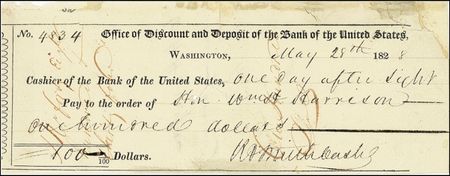 No. 4834 Office of Discount and Deposit of the Bank of the United States,
Washington, May 28th 1828
Cashier of the Bank of the United States, one day after sight
Pay to the order of Hon Wm H Harrison
One hundred dollars
100 00/100 Dollars. Cash